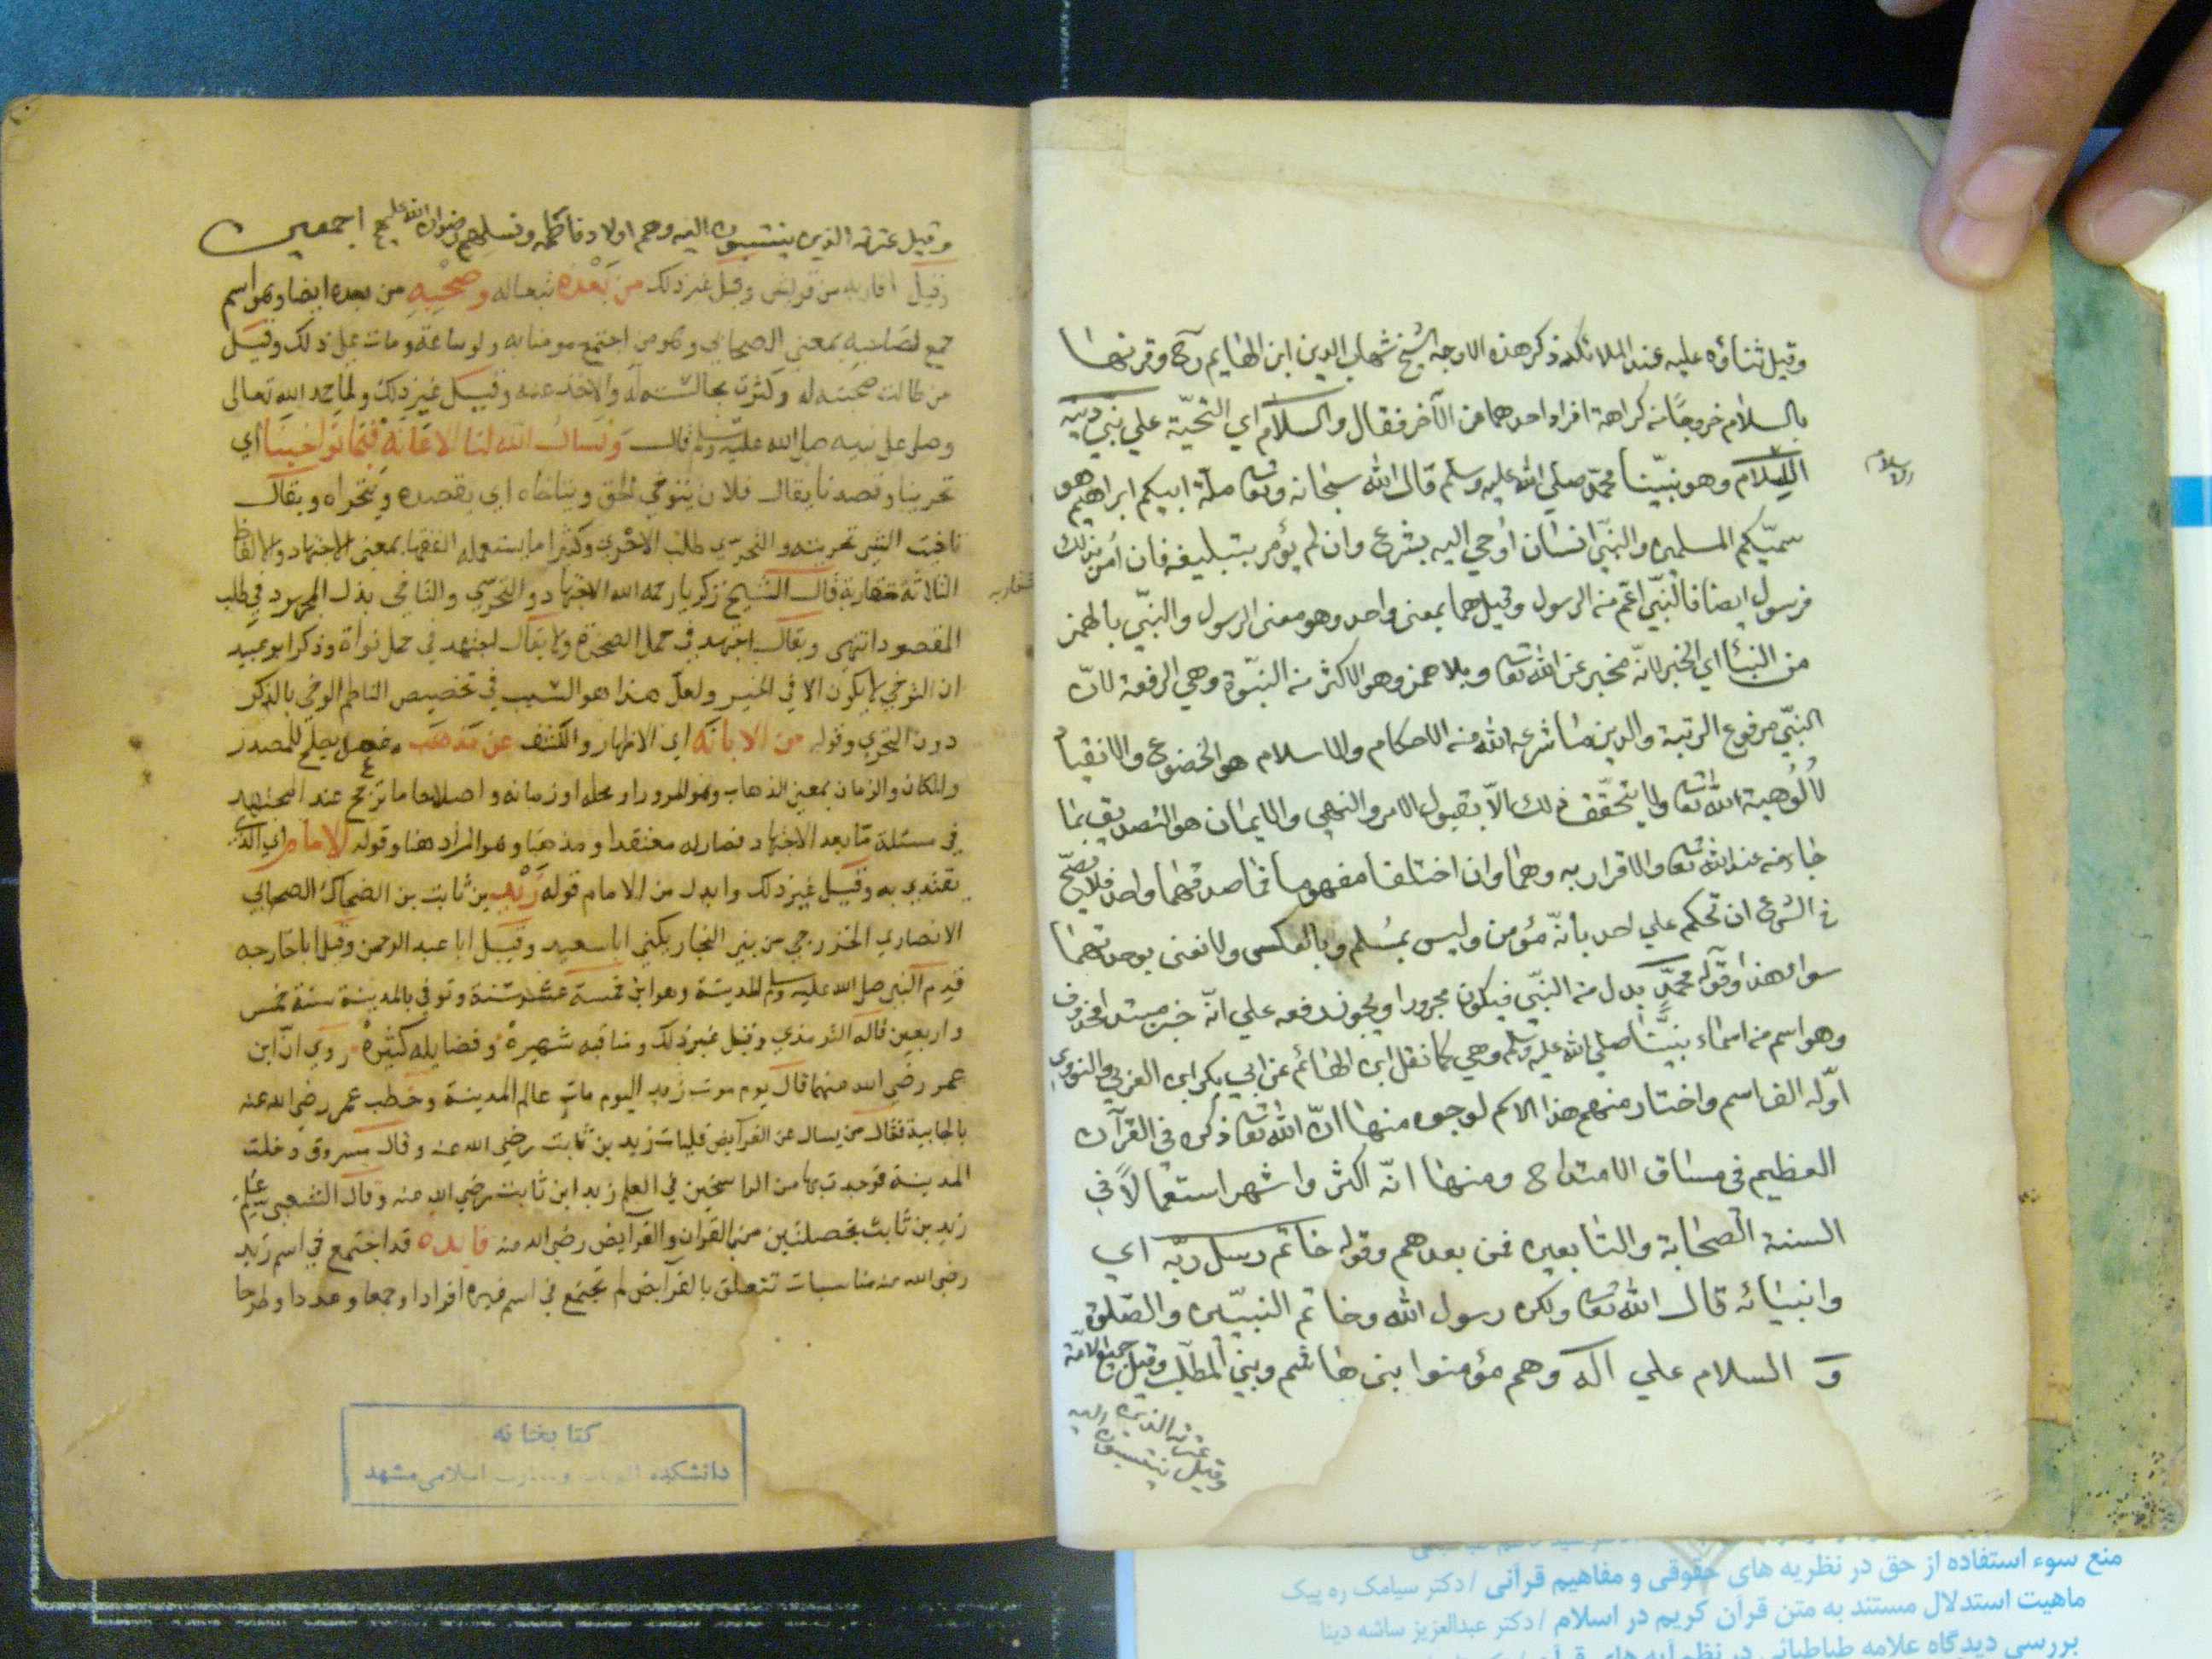 وقيل ثناؤه عليه عند الملائكة ذكر هذه الاوجه الشيخ شهاب الدين ابن الهايم رح وقرنها
بالسلام خروجًا من كراهة افراد احدهما عن الآخر فقال والسلام اي التحيّة علي نبيّ دينه
الاسلام
السلام وهو نبيّنا محمّد صلي الله عليه وسلم قال الله سبحانه وتعا ملة ابيكم ابراهيم هو
سمّيكم المسلمين والنبيّ انسان اُوحي اليه بشرع وان لم يؤمر بتبليغه فان اُمر بذلك
فرسول ايضا فالنبيّ اعمّ من الرسول وقيل هما بمعنى واحد وهو معنى الرسول والنبيّ بالهمز
من النبأ اي الخبر لانّه مخبر عن الله تعا وبلا همز وهو الاكثر من النبّوة وهي الرفعة لانّ
النبيّ مرفوع الرتبة والدين ما شرعه الله من الاحكام والاسلام هو الخضوع والانقياد
لاُلوهية الله تعا ولا يتحقّق ذلك الاّ بقبول الامر والنهي والايمان هو التصديق بما
جاء من عند الله تعا والاقرار به وهما وان اختلفا مفهوما فما صدقهما واحد فلا يصحّ
في الشرع ان تحكم علي احد بانّه مؤمن وليس بمُسلم وبالعكس ولا نعنى بوحدتهما
سوا هذا وقوله محمّدٍ بدل من النبيّ فيكون مجرورا ويجوز رفعه علي انّه خبر مبتدا محذوف
وهو اسم من اسماء نبيّنا صلي الله عليه وسلم وهي كما نقل ابن الهائم عن ابي بكر ابن العربي والنووي
اوّله الف اسم واختار منهم هذا الاسم لوجوه منها انّ الله تعا ذكره في القرآن
العظيم في مساق الامتداح ومنها انّه اكثر واشهر استعمالاً في
السنة الصحابة والتابعين فمن بعدهم وقوله خاتم رسل ربّه اي
وانبيائه قال الله تعا ولكن رسول الله وخاتم النبيّين والصّلوة
و السلام علي اله وهم مؤمنوا بنى هاشم وبني المطّلب وقيل جميع الامّة
وقيل عترته الذين ينتسبون اليه
وقيل عترته الذين ينتسبون اليه وهم اولاد فاطمه ونسلهم رضوان الله عليهم اجمعين
وقيل اقاربه من قريش وقيل غير ذلك من بَعْده تبعا له وصَحْبِهِ من بعده ايضا وهو اسم
جمع لصاحبه بمعنى الصحابي وهو من اجتمع مومنا به ولو ساعة ومات على ذلك وقيل
من طالت صحبته له وكثرت مجالسته له والاخذ عنه وقيل غير ذلك ولما حمد الله تعالى
وصلى على نبيه صلى الله عليه وسلم قال وَنَسْالُ اللّه لنا الاعَانَهْ فيْمَا تَوَخينَا اي
تحرينا وقصدنا يقال فلان يتوخى الحق ويتاخاه اي يقصده ويتحراه ويقال
تاخيت الشي تحريته والتحري طلب الاحرى وكثيرا ما يستعمله الفقها بمعنى الاجتهاد والالفاظ
الثلاثة متقاربة قال الشيخ زكريا رحمه الله الاجتهاد والتحري والتاخى بذل المجهود في طلب
متقاربه
المقصود انتهى ويقال اجتهد في حمل الصخرة ولا يقال اجتهد في حمل نواة وذكر ابو عبيد
ان التوخي لا يكون الا في الخير ولعل هذا هو السبب في تخصيص الناظم الوخي بالذكر
دون التحري وقوله من الابانَه اي الاظهار والكشف عن مَذْهَب مفعل يصلح للمصدر
والمكان والزمان بمعنى الذهاب وهو المرور او محله او زمانه واصطلاحا ما ترجح عند المجتهد
في مسئلة مّا بعد الاجتهاد فصار له معتقدا ومذهبا وهو المراد هنا وقوله الامام اي الذي
يقتدي به وقيل غير ذلك وابدل من الامام قوله زَيْد بن ثابت بن الضحاك الصحابي
الانصاري الخزرجي من بني النجار يكنى ابا سعيد وقيل ابا عبد الرحمن وقيل ابا خارجه
قدم النبي صلى الله عليه وسلم المدينة وهو ابن خمسة عشر سنة وتوفي بالمدينة سنة خمس
واربعين قاله الترمذي وقيل غير ذلك ومناقبه شهيرة وفضايله كثيرة روي انّ ابن
عمر رضي الله عنهما قال يوم موت زيد اليوم مات عالم المدينة وخطب عمر رضي الله عنه
بالجابية فقال من يسال عن الفرآيض فليات زيد بن ثابت رضي الله عنه وقال مسروق دخلت
المدينة فوجدت بها من الراسخين في العلم زيد ابن ثابت رضي الله عنه وقال الشعبي غلب
زيد بن ثابت بخصلتين من القران والفرآيض رضي الله عنه فايده قد اجتمع في اسم زيد
رضي الله عنه مناسبات تتعلق بالفرآيض لم تجتمع في اسم غيره افرادا وجمعا وعددا وطرحا
كتابخانه
دانشكده الهيات و معارف اسلامى مشهد
منع سوء استفاده از حق در نظریه های حقوقی و مفاهیم قرآنی / دکتر سیامک ره پیک
ماهیت استدلال مستند به متن قرآن کریم در اسلام / دکتر عبدالعزیز ساشه دینا
بررسی دیدگاه علامه طباطبائی در نظم آیه های قرآن